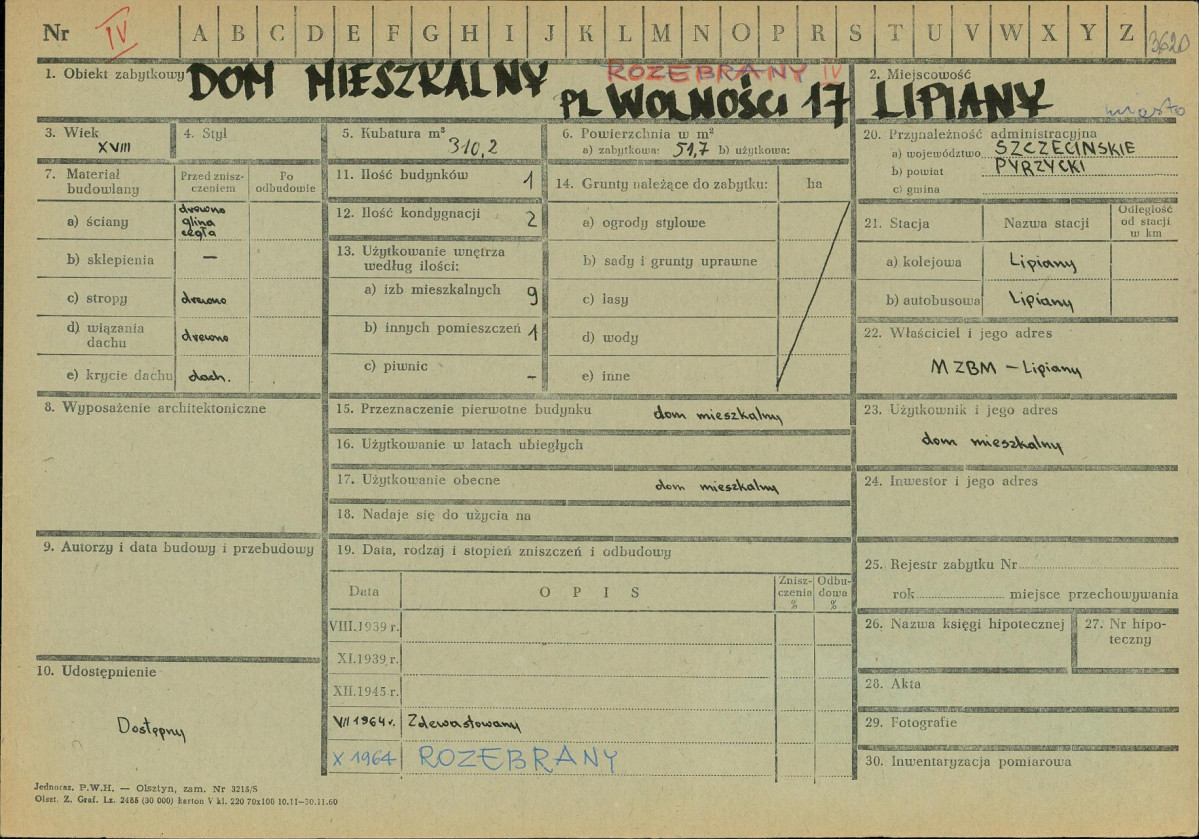 Nr IV A B C D E F G H I J K L M N O P R S T U V W X Y Z 3620
1. Obiekt zabytkowy DOM MIESZKALNY
ROZEBRANY IV
PL WOLNOŚCI 17
2. Miejscowość
LIPIANY
miasto
3. Wiek
XVIII
4. Styl
5. Kubatura m³
310,2
6. Powierzchnia w m²
a) zabytkowa: 51,7 b) użytkowa:
7. Materiał budowlany
Przed znisz-
czeniem
Po
odbudowie
a) ściany
drewno
glina
cegła
b) sklepienia —
c) stropy drewno
d) wiązania
dachu drewno
e) krycie dachu dach.
8. Wyposażenie architektoniczne
9. Autorzy i data budowy i przebudowy
10. Udostępnienie
Dostępny
11. Ilość budynków 1
12. Ilość kondygnacji 2
13. Użytkowanie wnętrza
według ilości:
a) izb mieszkalnych 9
b) innych pomieszczeń 1
c) piwnic –
14. Grunty należące do zabytku: ha
a) ogrody stylowe
b) sady i grunty uprawne
c) lasy
d) wody
e) inne
15. Przeznaczenie pierwotne budynku dom mieszkalny
16. Użytkowanie w latach ubiegłych
17. Użytkowanie obecne dom mieszkalny
18. Nadaje się do użycia na
19. Data, rodzaj i stopień zniszczeń i odbudowy
Data
O P I S
Znisz-
czenia
%
Odbu-
dowa
%
VIII.1939 r.
XI.1939 r.
XII.1945 r.
VII 1964 r. Zdewastowany
X 1964 ROZEBRANY
20. Przynależność administracyjna
a) województwo SZCZECIŃSKIE
b) powiat PYRZYCKI
c) gmina
21. Stacja
Nazwa stacji
Odległość
od stacji
w km
a) kolejowa Lipiany
b) autobusowa Lipiany
22. Właściciel i jego adres
MZBM – Lipiany
23. Użytkownik i jego adres
dom mieszkalny
24. Inwestor i jego adres
25. Rejestr zabytku Nr
rok miejsce przechowywania
26. Nazwa księgi hipotecznej
27. Nr hipo-
teczny
28. Akta
29. Fotografie
30. Inwentaryzacja pomiarowa
Jednoraz. P.W.H. — Olsztyn, zam. Nr 3215/S
Olszt. Z. Graf. Lz. 2485 (30 000) karton V kl. 220 70x100 10.11—30.11.60